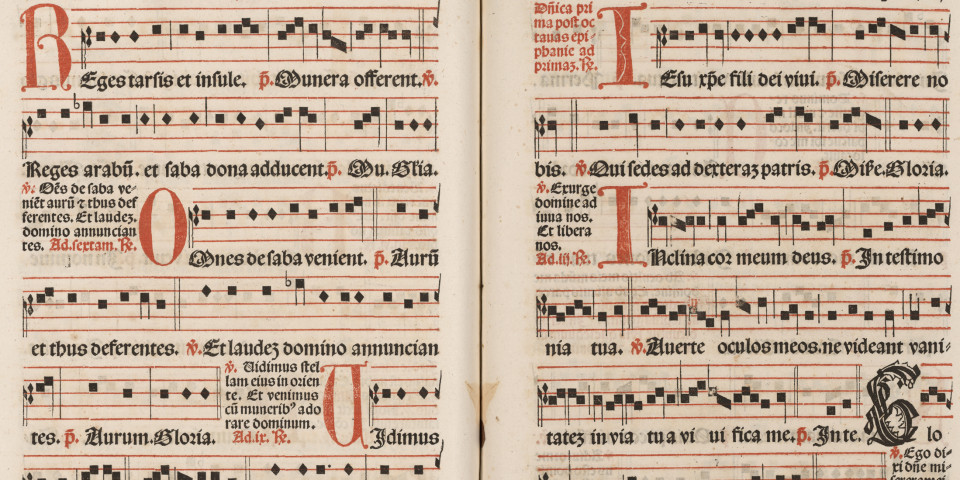 REges tarsis et insule. p̄. Munera offerent. v̄.
Reges arabū. et saba dona adducent p̄. Mu. Gl̄ia.
v̄. Oēs de saba ve-
niēt aurū ⁊ thus def
ferentes. Et laudeʒ.
domino annuncian
tes. Ad.sextam. R̄.
OMnes de saba venient. p̄. Aurū
et thus deferentes. v̄. Et laudeʒ domino annuncian
tes. p̄. Aurum. Gloria.
v̄. Vidimus stel
lam eius in orien
te. Et venimus
cū munerib⁹ ado
rare dominum.
Ad.ix. R̄.
VIdimus
Dn̄ica pri
ma post oc
tauas epi-
phanie ad
primaʒ. R̄.
IEsu xp̄e fili dei viui. p̄. Miserere no
bis. v̄. Qui sedes ad dexteraʒ patris. p̄. Mise. Gloria.
v̄. Exurge
domine ad
iuua nos.
Et libera
nos.
Ad.iij. R̄.
INclina coꝛ meum deus. p̄. In testimo
nia tua. v̄. Auerte oculos meos. ne videant vani-
tateʒ in via tua vi ui fica me. p̄. In te. E lo
v̄. Ego di-
xi dn̄e mi-